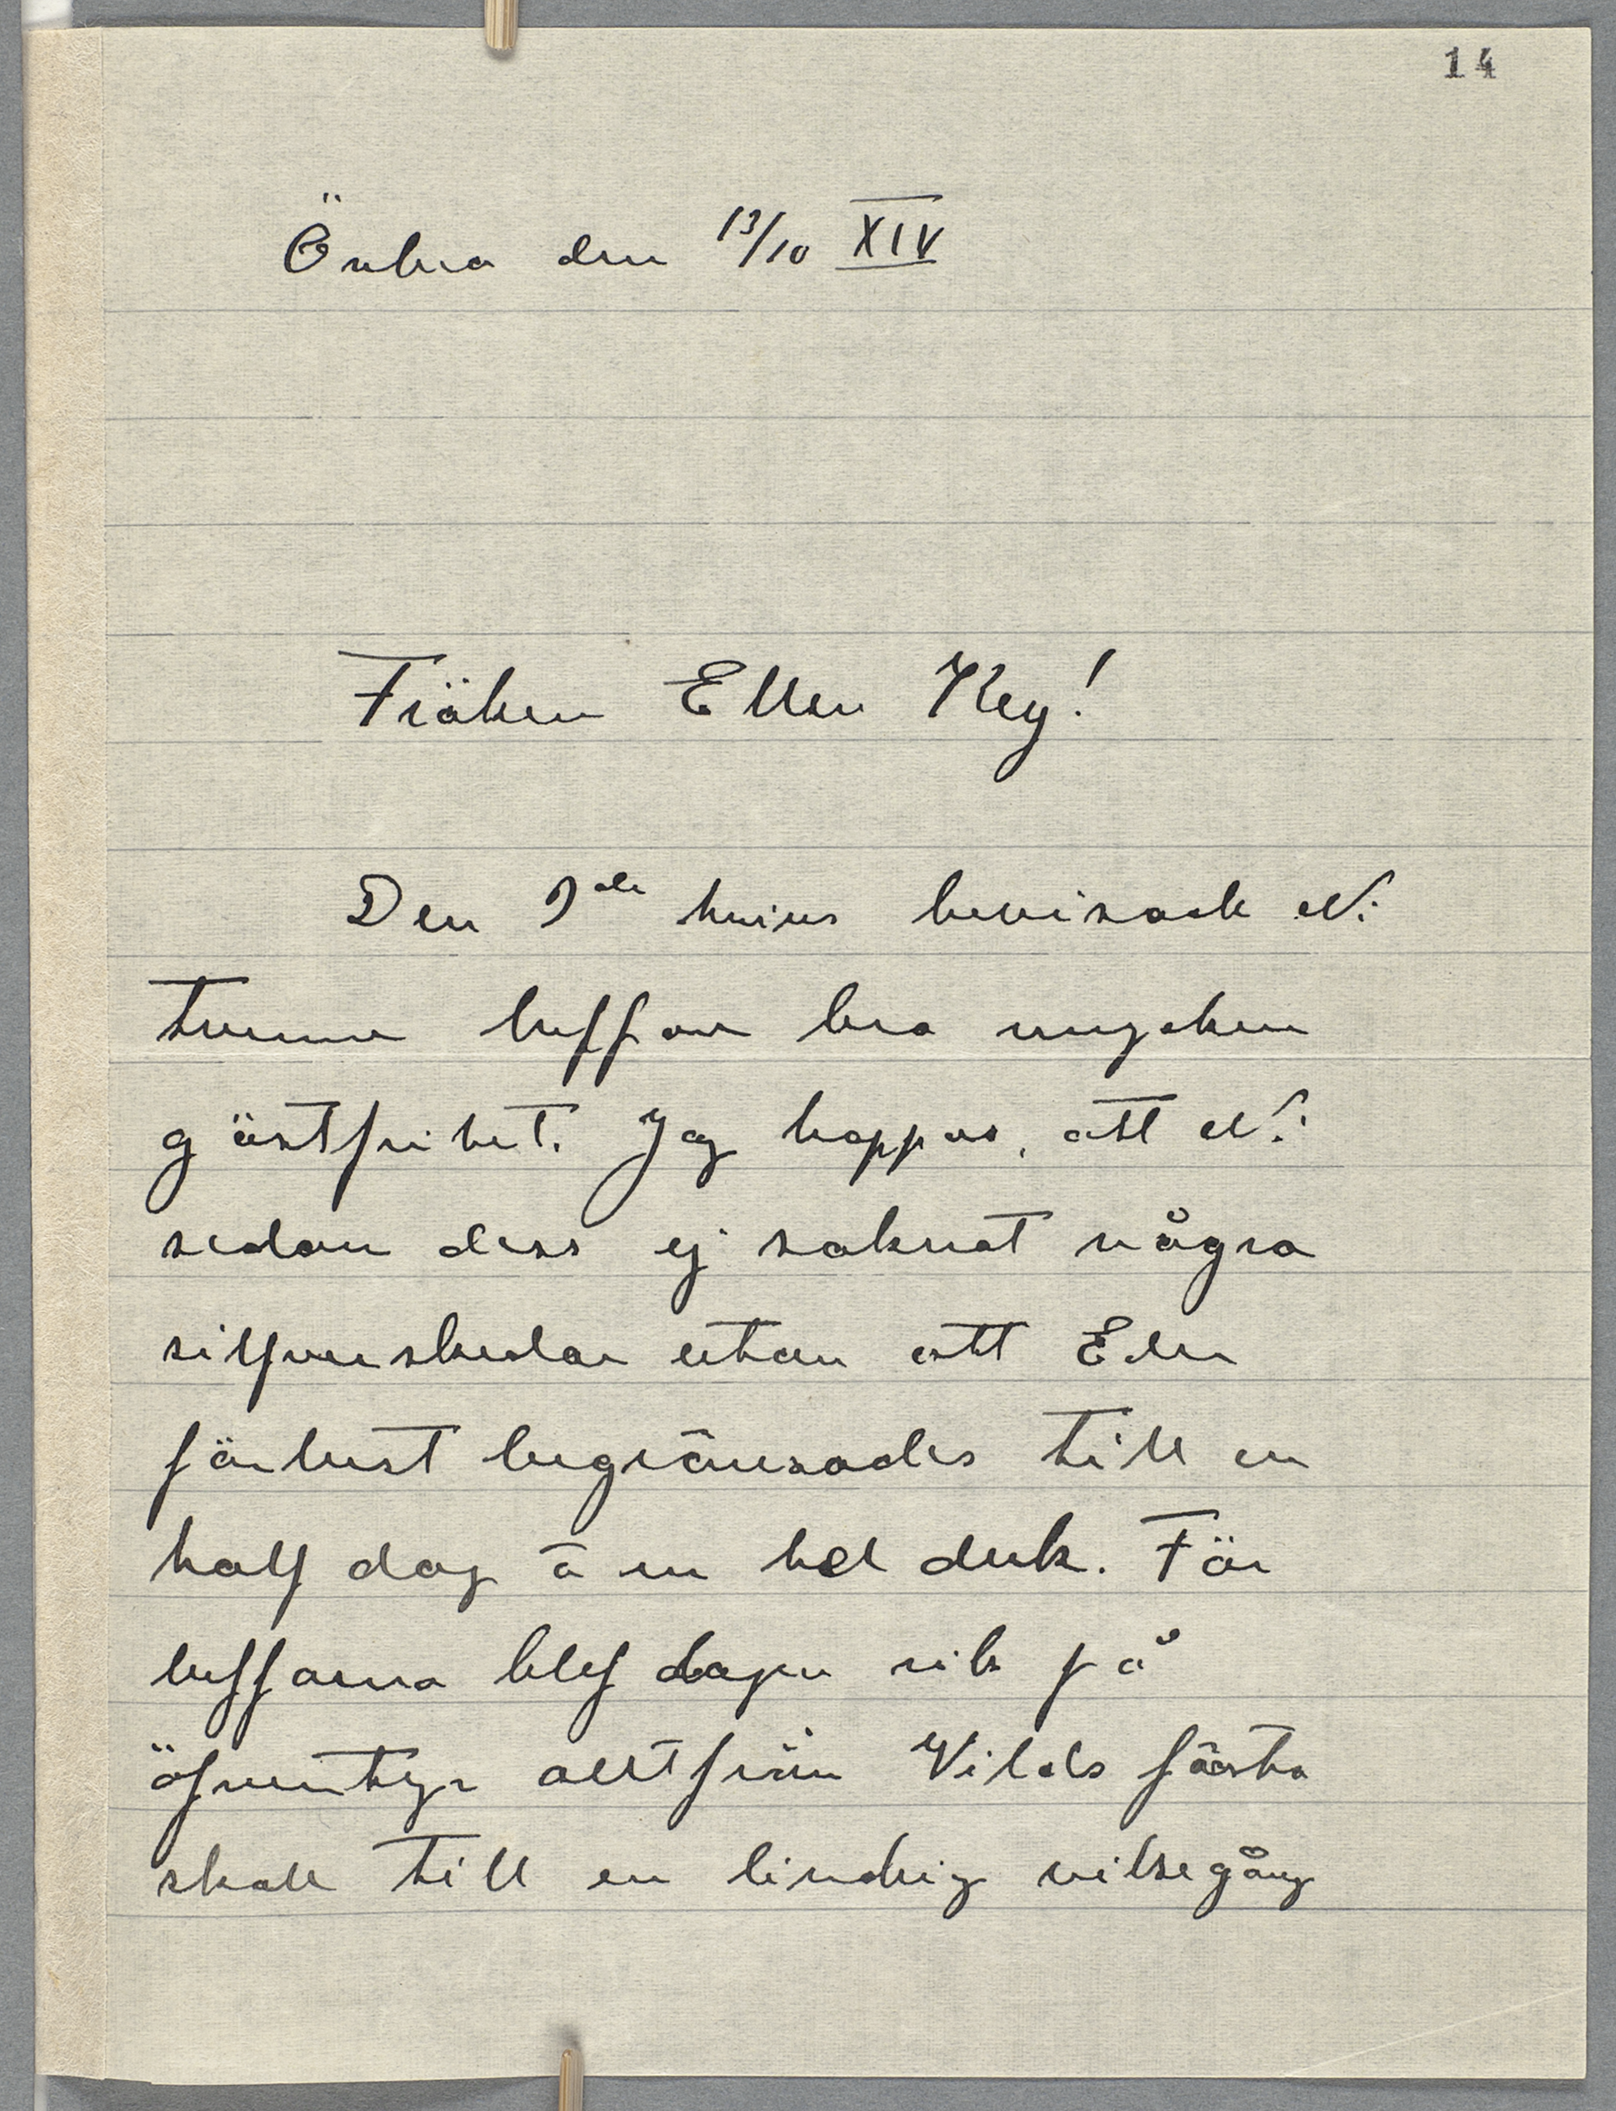 14
Örebro den 13/10 XIV
Fröken Ellen Key!
Den 9de huius bevisade Ni
tvenne luffare bra mycken
gästfrihet. Jag hoppas, att Ni
sedan dess ej saknat några
silfverskedar utan att Eder
förlust begränsades till en
half dag à en hel duk. För
luffarna blef dagen rik på
öfventyr alltifrån Vilds första
skall till en lindrig vilsegång